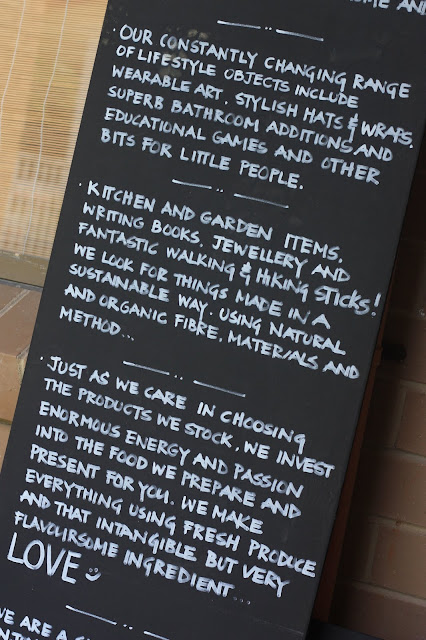 · OUR CONSTANTLY CHANGING RANGE
OF LIFESTYLE OBJECTS INCLUDE
WEARABLE ART, STYLISH HATS & WRAPS,
SUPERB BATHROOM ADDITIONS AND
EDUCATIONAL GAMES AND OTHER
BITS FOR LITTLE PEOPLE.
· KITCHEN AND GARDEN ITEMS,
WRITING BOOKS, JEWELLERY AND
FANTASTIC WALKING & HIKING STICKS!
WE LOOK FOR THINGS MADE IN A
SUSTAINABLE WAY. USING NATURAL
AND ORGANIC FIBRE, MATERIALS AND
METHOD...
· JUST AS WE CARE IN CHOOSING
THE PRODUCTS WE STOCK, WE INVEST
ENORMOUS ENERGY AND PASSION
INTO THE FOOD WE PREPARE AND
PRESENT FOR YOU. WE MAKE
EVERYTHING USING FRESH PRODUCE
AND THAT INTANGIBLE BUT VERY
FLAVOURSOME INGREDIENT....
LOVE
WE ARE A